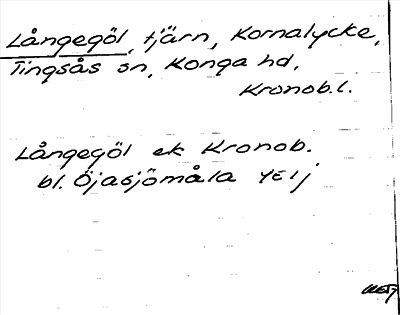 Långegöl, tjärn, Kornalycke,
Tingsås sn, Konga hd,
Kronob.l.
Långegöl ek Kronob.
bl. Öjasjömåla 4E1j